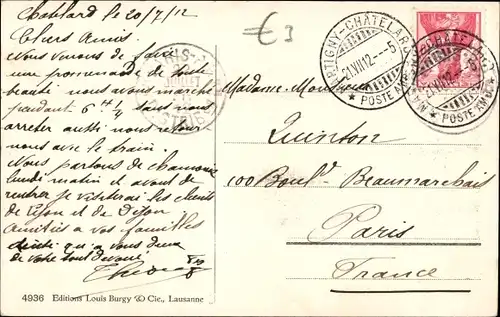 Chatelard le 20/7/12
€3
Chers Amis.
Nous venons de faire
une promenade de toute
beauté nous avons marché
pendant 6 h ½ sans nous
arreter aussi nous retour
nous avec le train.
Nous partons de chamonix
lundi matin et avant de
rentrer je visiterai les clients
de Lyon et de Dijon
Amitiés a vos familles
ainsi qu'a vous deux
de votre tout devoué
MARTIGNY-CHÂTELARD
21.VII.12.-5
★ POSTE AMB.
MARTIGNY-CHÂTELARD
21.VII.12.-5
★ POSTE AMB.
Madame-Monsieur
Quinton
100 Boul.d Beaumarchais
Paris
France
4936 Editions Louis Burgy & Cie., Lausanne